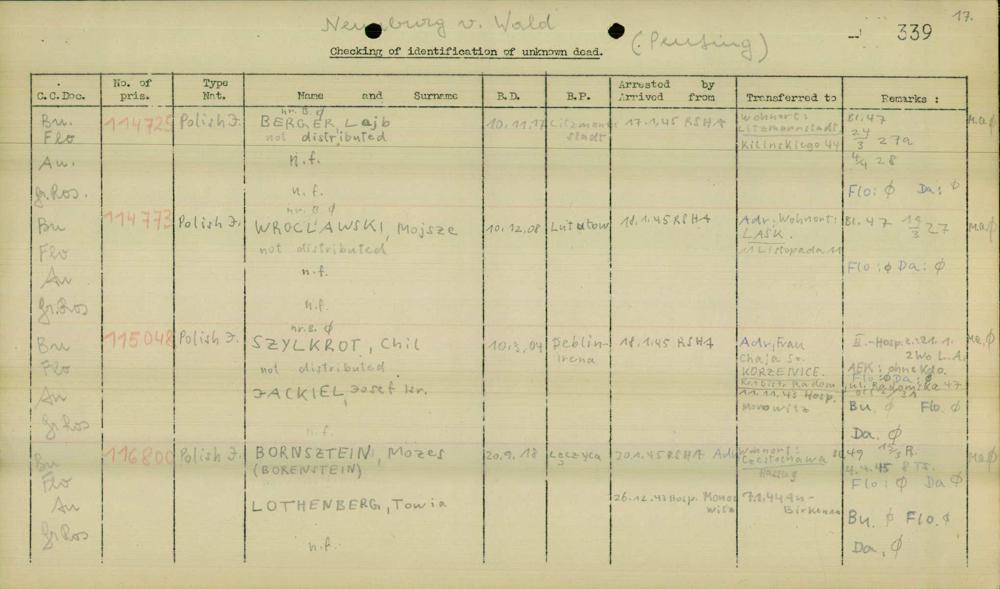 17.
Neunburg v. Wald
339
(Penting)
Checking of identification of unknown dead.
C.C.Doc. No. of pris. Type Nat. Name and Surname B.D. B.P. Arrested by Arrived from Transferred to Remarks :
nr. B. ∅
Bu. 114725 Polish J. BERGER Lajb 10.11.17 Litzmann- 17.1.45 RSHA Wohnort: Bl. 47
Flo not distributed stadt Litzmannstadt, 24/3 27a
Kilinskiego 44
Au. n.f. 4/4 28
gr.Ros. n.f. Flo: ∅ Da: ∅
nr. B ∅
Bu 114773 Polish J. WROCLAWSKI, Mojsze 10.12.08 Lututow 18.1.45 RSHA Adr. Wohnort: Bl. 47 27
Flo not distributed LASK.
11 Listopada 11
Au n.f. Flo: ∅ Da: ∅
gr.Ros n.f.
nr. B. ∅
Bu 115048 Polish J. SZYLKROT, Chil 10.3.04 Deblin- 18.1.45 RSHA Adr. Frau
Irena Chaja Sz.
Flo not distributed KORZENICE. AEK: ohne Kdo.
Kr. Bistr. Radom ul. Radomska 47
Au JACKIEL, Josef Isr. 11.11.43 Hosp.
Monowitz Bu. ∅ Flo. ∅
gr.Ros n.f. Da. ∅
Bu 116800 Polish J. BORNSZTEIN, Mozes 20.9.18 Łęczyca 20.1.45 RSHA Wohnort: Bl. 49
(BORENSTEIN) Czestochowa 4.4.45
Hassag
Flo Flo: ∅ Da ∅
Au LOTHENBERG, Towia 26.12.43 Hosp. Mono- 7.1.44 Au-
witz Birkenau Bu. ∅ Flo. ∅
gr.Ros n.f. Da. ∅